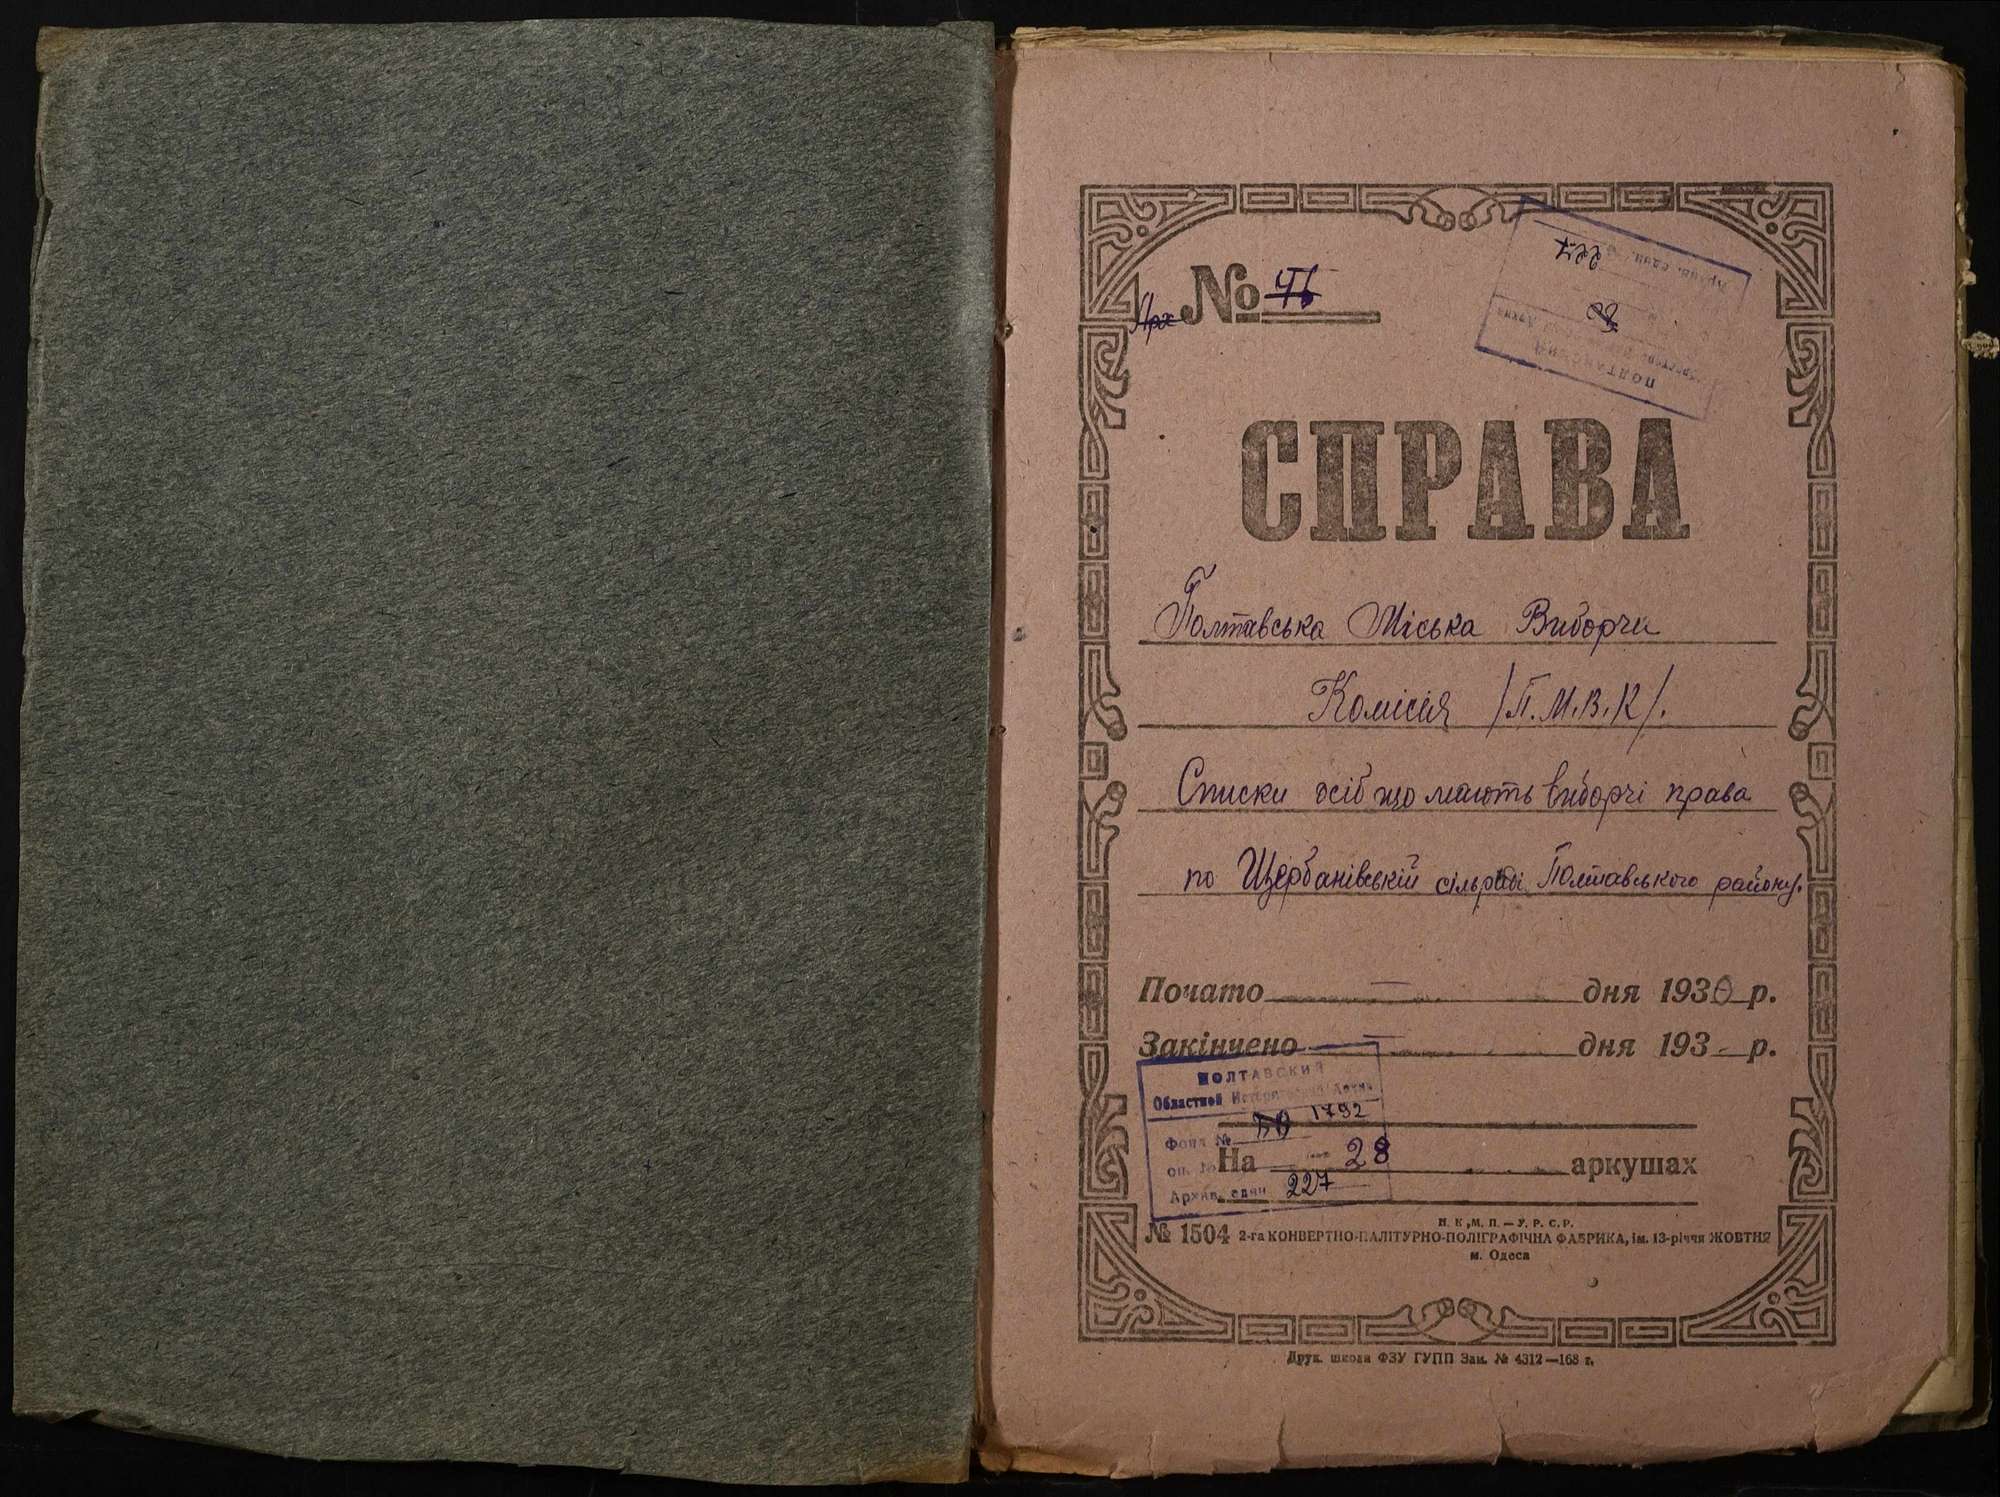 Арх № 46
227
СПРАВА
Полтавська Міська Виборчи
Комісія /П.М.В.К/.
Списки осіб що мають виборчі права
по Щербанівській сільраді Полтавського району.
Почато — дня 1930 р.
Закінчено — дня 193- р.
ПОЛТАВСКИЙ
Областной
1792
Фонд №
На 28 аркушах
Архив. един 227
№ 1504 2-га КОНВЕРТНО-ПАЛІТУРНО-ПОЛІГРАФІЧНА ФАБРИКА, ім. 13-річчя ЖОВТНЯ
Н. К. М. П. — У. Р. С. Р.
м. Одеса
Друк. школи ФЗУ ГУПП Зам. № 4312—168 т.